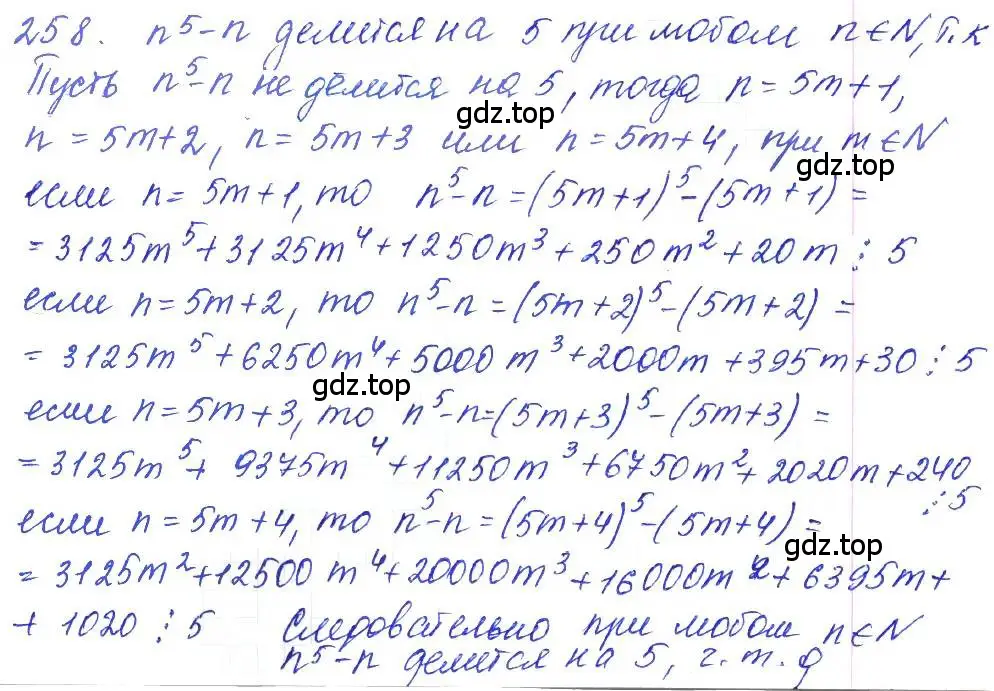 258. n⁵-n делится на 5 при любом n∈N, т.к
Пусть n⁵-n не делится на 5, тогда n = 5m+1,
gdz.top
n = 5m+2, n = 5m+3 или n = 5m+4, при m∈N
gdz.top
если n = 5m+1, то n⁵-n = (5m+1)⁵-(5m+1) =
= 3125m⁵+3125m⁴+1250m³+250m²+20m ⋮ 5
если n = 5m+2, то n⁵-n = (5m+2)⁵-(5m+2) =
= 3125m⁵+6250m⁴+5000m³+2000m+395m+30 ⋮ 5
gdz.top
если n = 5m+3, то n⁵-n = (5m+3)⁵-(5m+3) =
= 3125m⁵+ 9375m⁴+11250m³+6750m²+2020m+240
⋮ 5
если n = 5m+4, то n⁵-n = (5m+4)⁵-(5m+4) =
gdz.top
= 3125m²+12500m⁴+20000m³+16000m²+6395m+
+ 1020 ⋮ 5 Следовательно при любом n∈N
n⁵-n делится на 5, ч.т.д